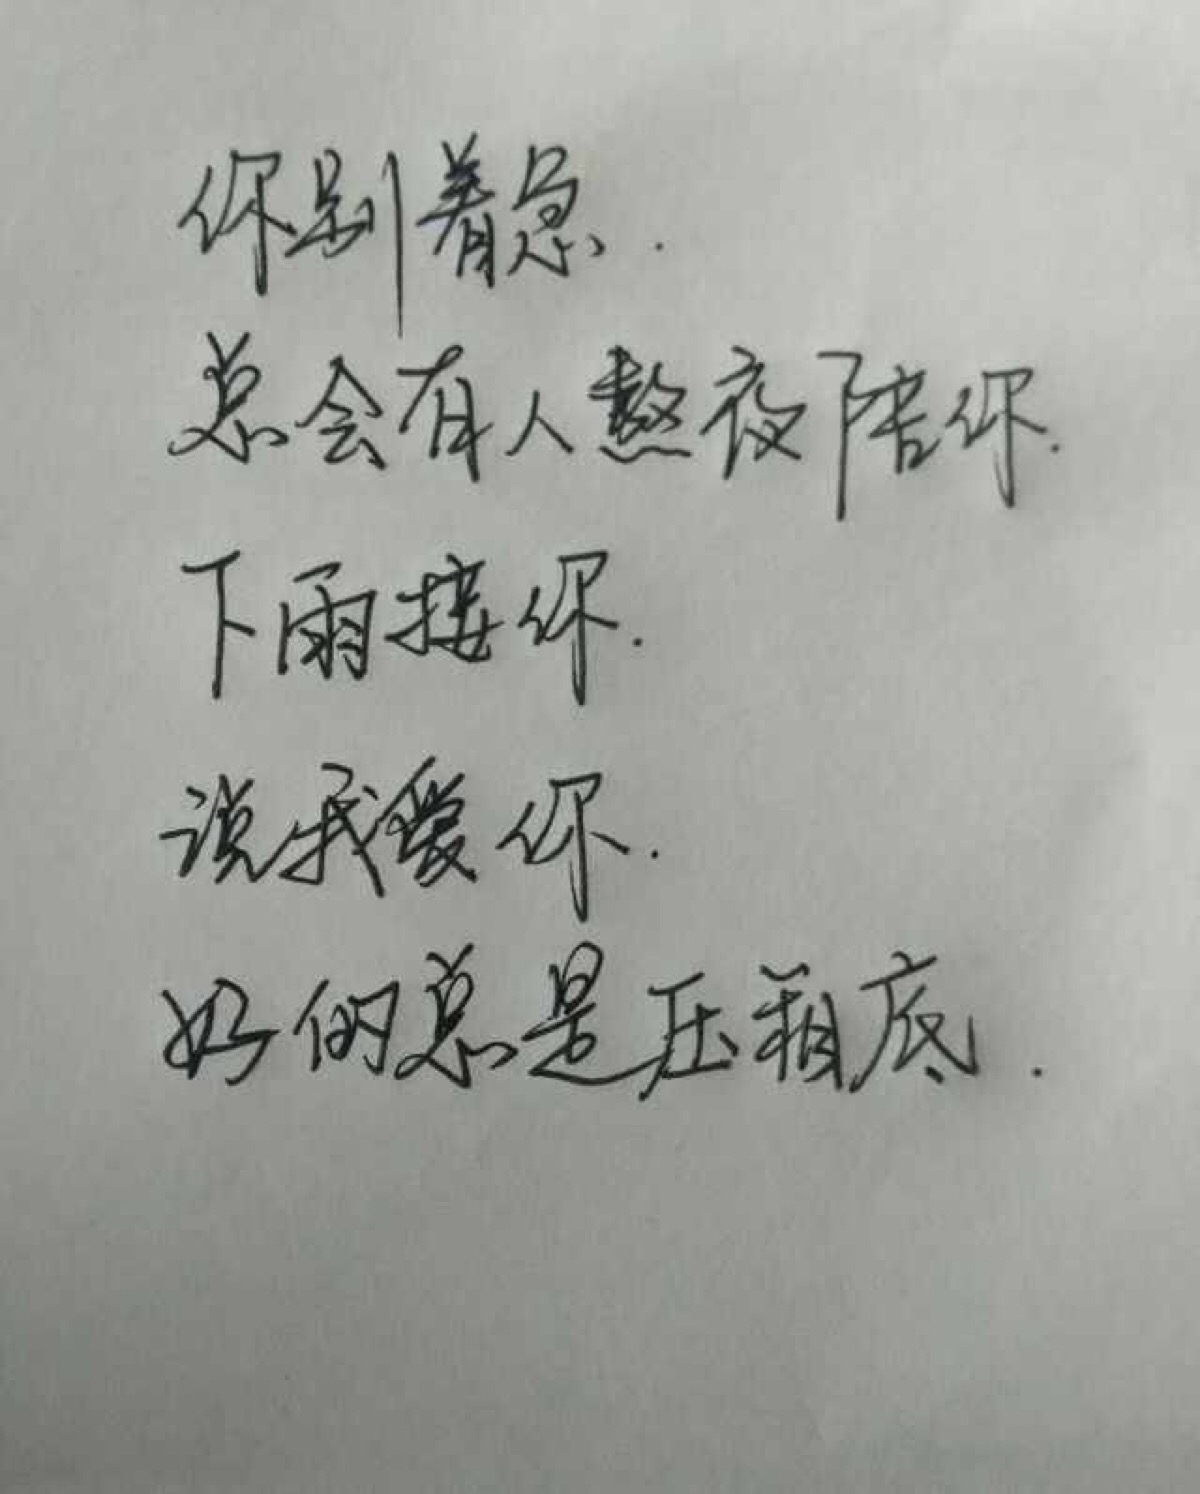 你别着急.
总会有人熬夜陪你.
下雨接你.
说我爱你.
好的总是压箱底.